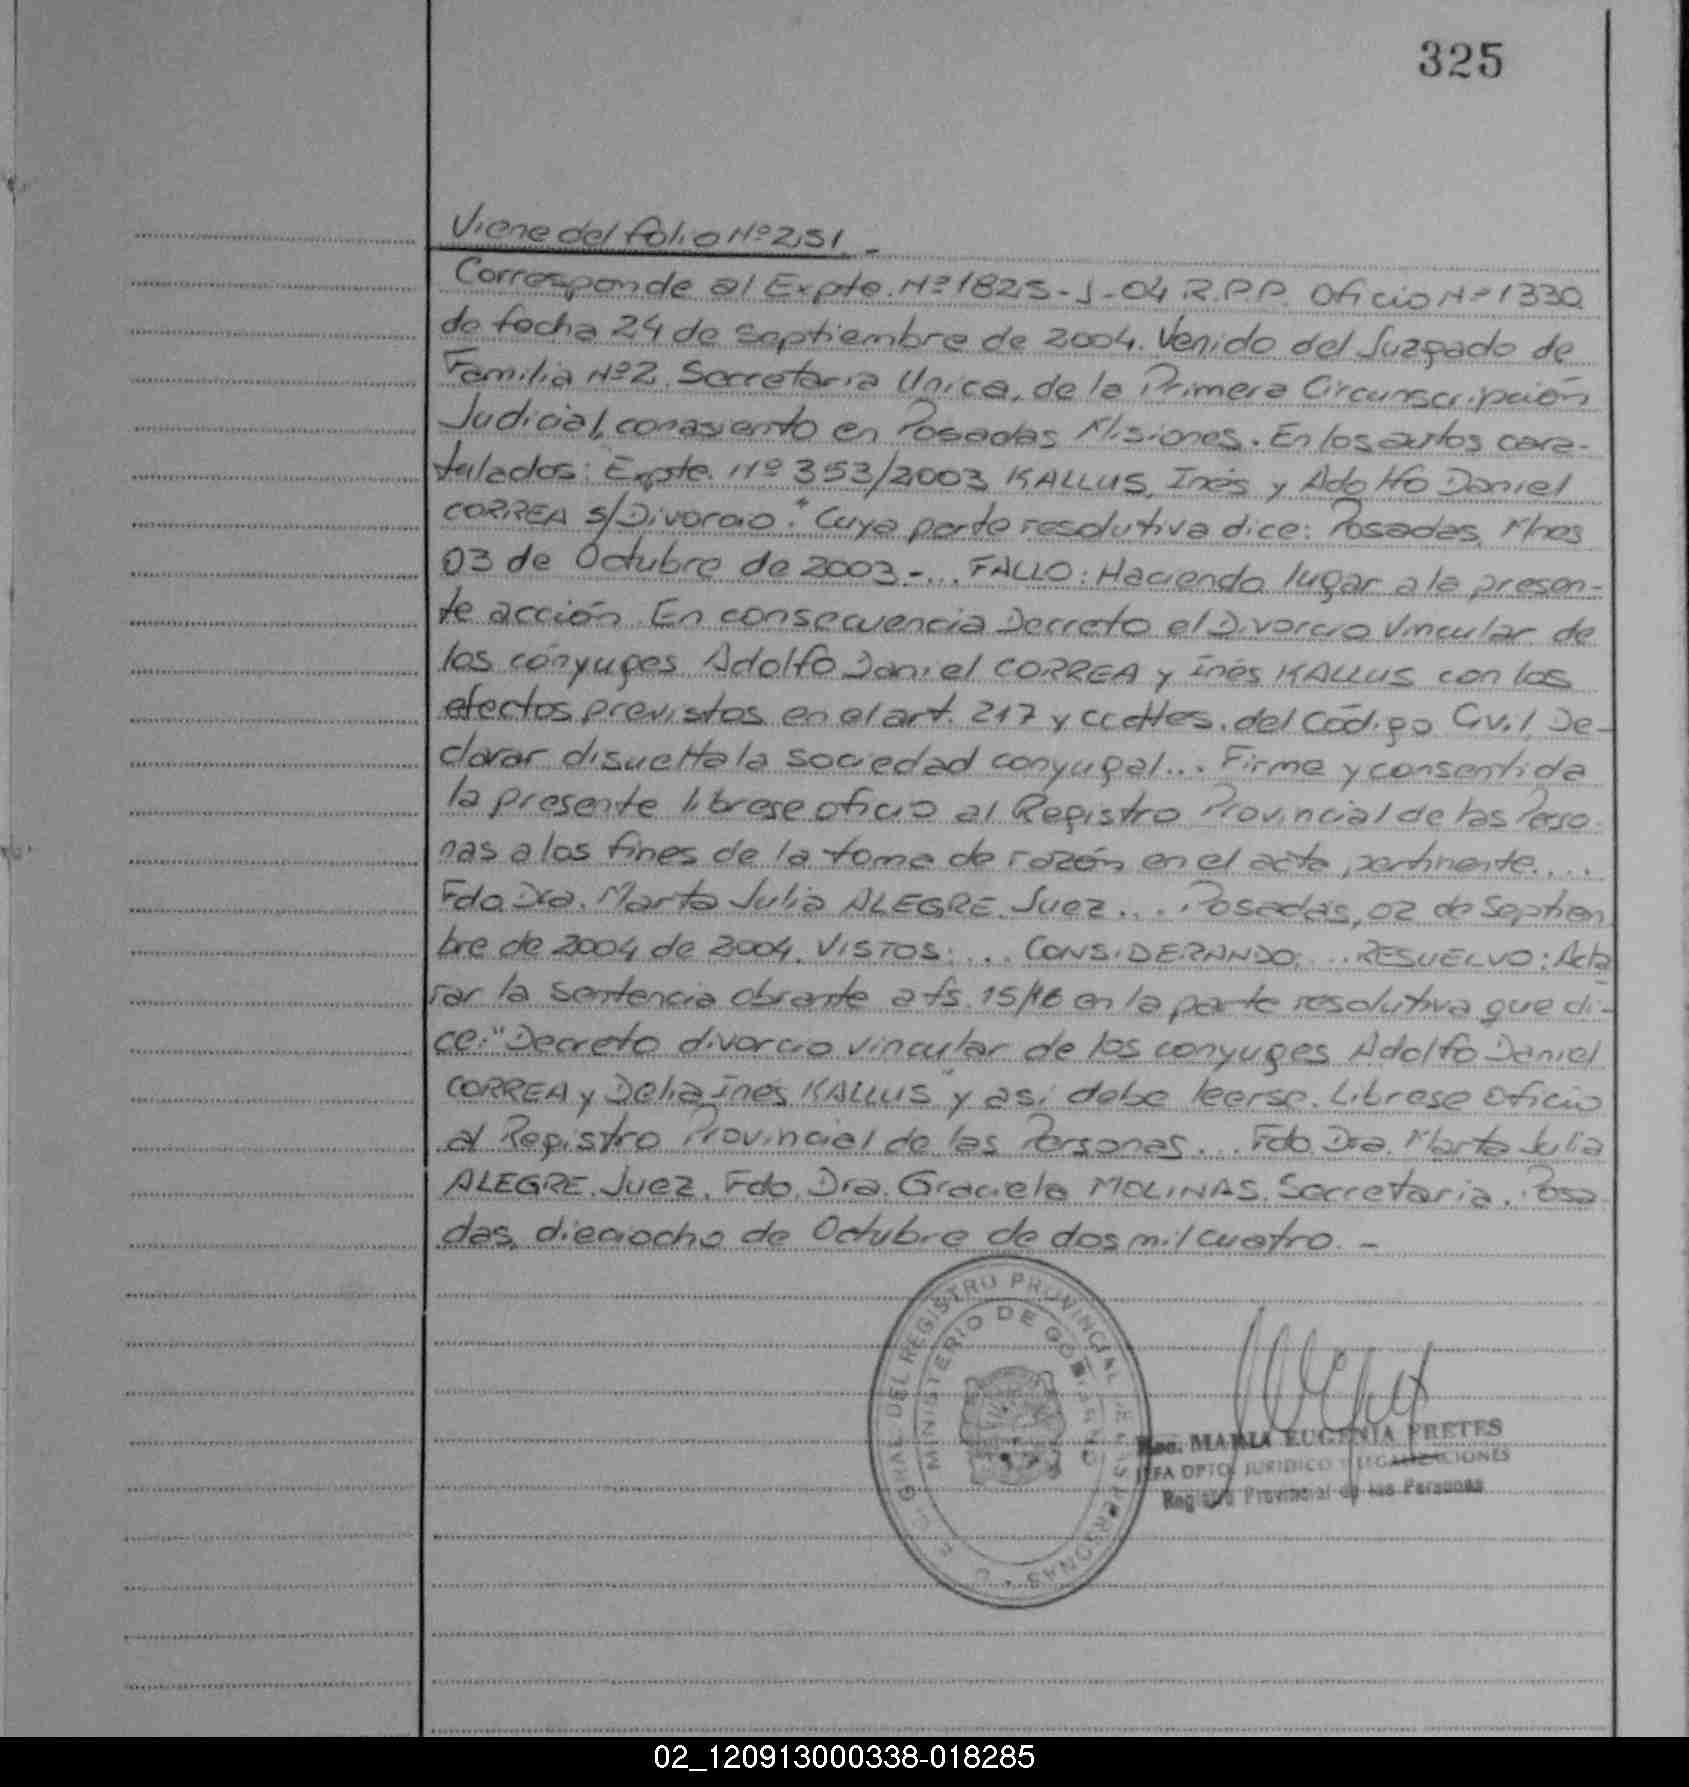 325
Viene del folio Nº 251. -
Corresponde al Expte. Nº 1825-J-04 R.P.P. Oficio Nº 1330
de fecha 24 de septiembre de 2004. Venido del Juzgado de
Familia Nº2, Secretaria Unica, de la Primera Circunscripción
Judicial, con asiento en Posadas Misiones. En los autos cara-
tulados: Expte. Nº 353/2003 KALLUS, Inés y Adolfo Daniel
CORREA s/Divorcio." Cuya parte resolutiva dice: Posadas, Mnes
03 de Octubre de 2003-... FALLO: Haciendo lugar a la presen-
te acción. En consecuencia Decreto el Divorcio Vincular de
los cónyuges Adolfo Daniel CORREA y Inés KALLUS con los
efectos previstos en el art. 217 y ccdtes. del Código Civil, De-
clarar disuelta la sociedad conyugal... Firme y consentida
la presente librese oficio al Registro Provincial de las Perso-
nas a los fines de la toma de razón en el acta pertinente....
Fdo. Dra. Marta Julia ALEGRE. Juez.... Posadas, 02 de Septiem
bre de 2004 de 2004. VISTOS:... CONSIDERANDO:... RESUELVO: Acla
rar la sentencia obrante a fs. 15/16 en la parte resolutiva que di-
ce: "Decreto divorcio vincular de los conyuges Adolfo Daniel
CORREA y Delia Inés KALLUS" y así debe leerse. Librese Oficio
al Registro Provincial de las Personas... Fdo. Dra. Marta Julia
ALEGRE. Juez. Fdo. Dra. Graciela MOLINAS. Secretaria. Posa
das, dieciocho de Octubre de dos mil cuatro. -
GRAL. DEL REGISTRO PROVINCIAL DE LAS PERSONAS
MINISTERIO DE GOBIERNO
MARIA EUGENIA PRETES
JEFA DPTO. JURIDICO Y LEGALIZACIONES
Registro Provincial de las Personas
02_120913000338-018285